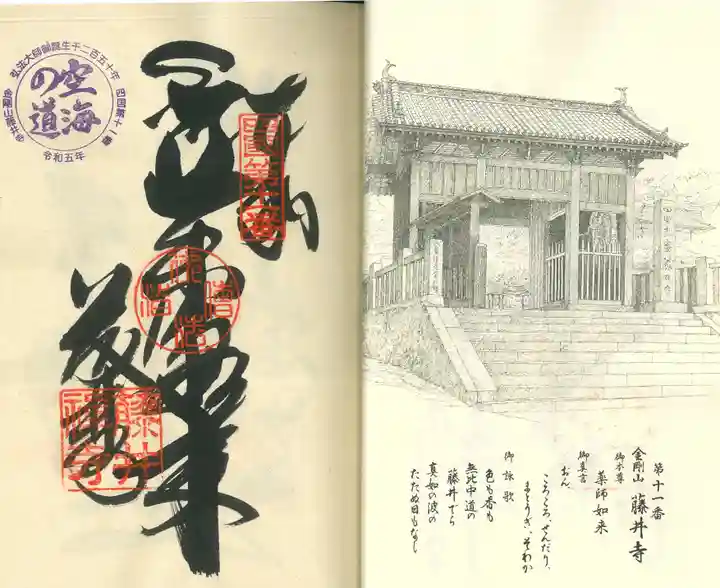 弘法大師御誕生千二百五十年
四国第十一番
空海
の道
金剛山藤井寺
令和五年
奉納
薬師如来
第十一番
金剛山 藤井寺
御本尊
薬師如来
御真言
おん、
ころころ、せんだり、
まとうぎ、そわか
御詠歌
色も香も
無比中道の
藤井でら
真如の波の
たたぬ日もなし